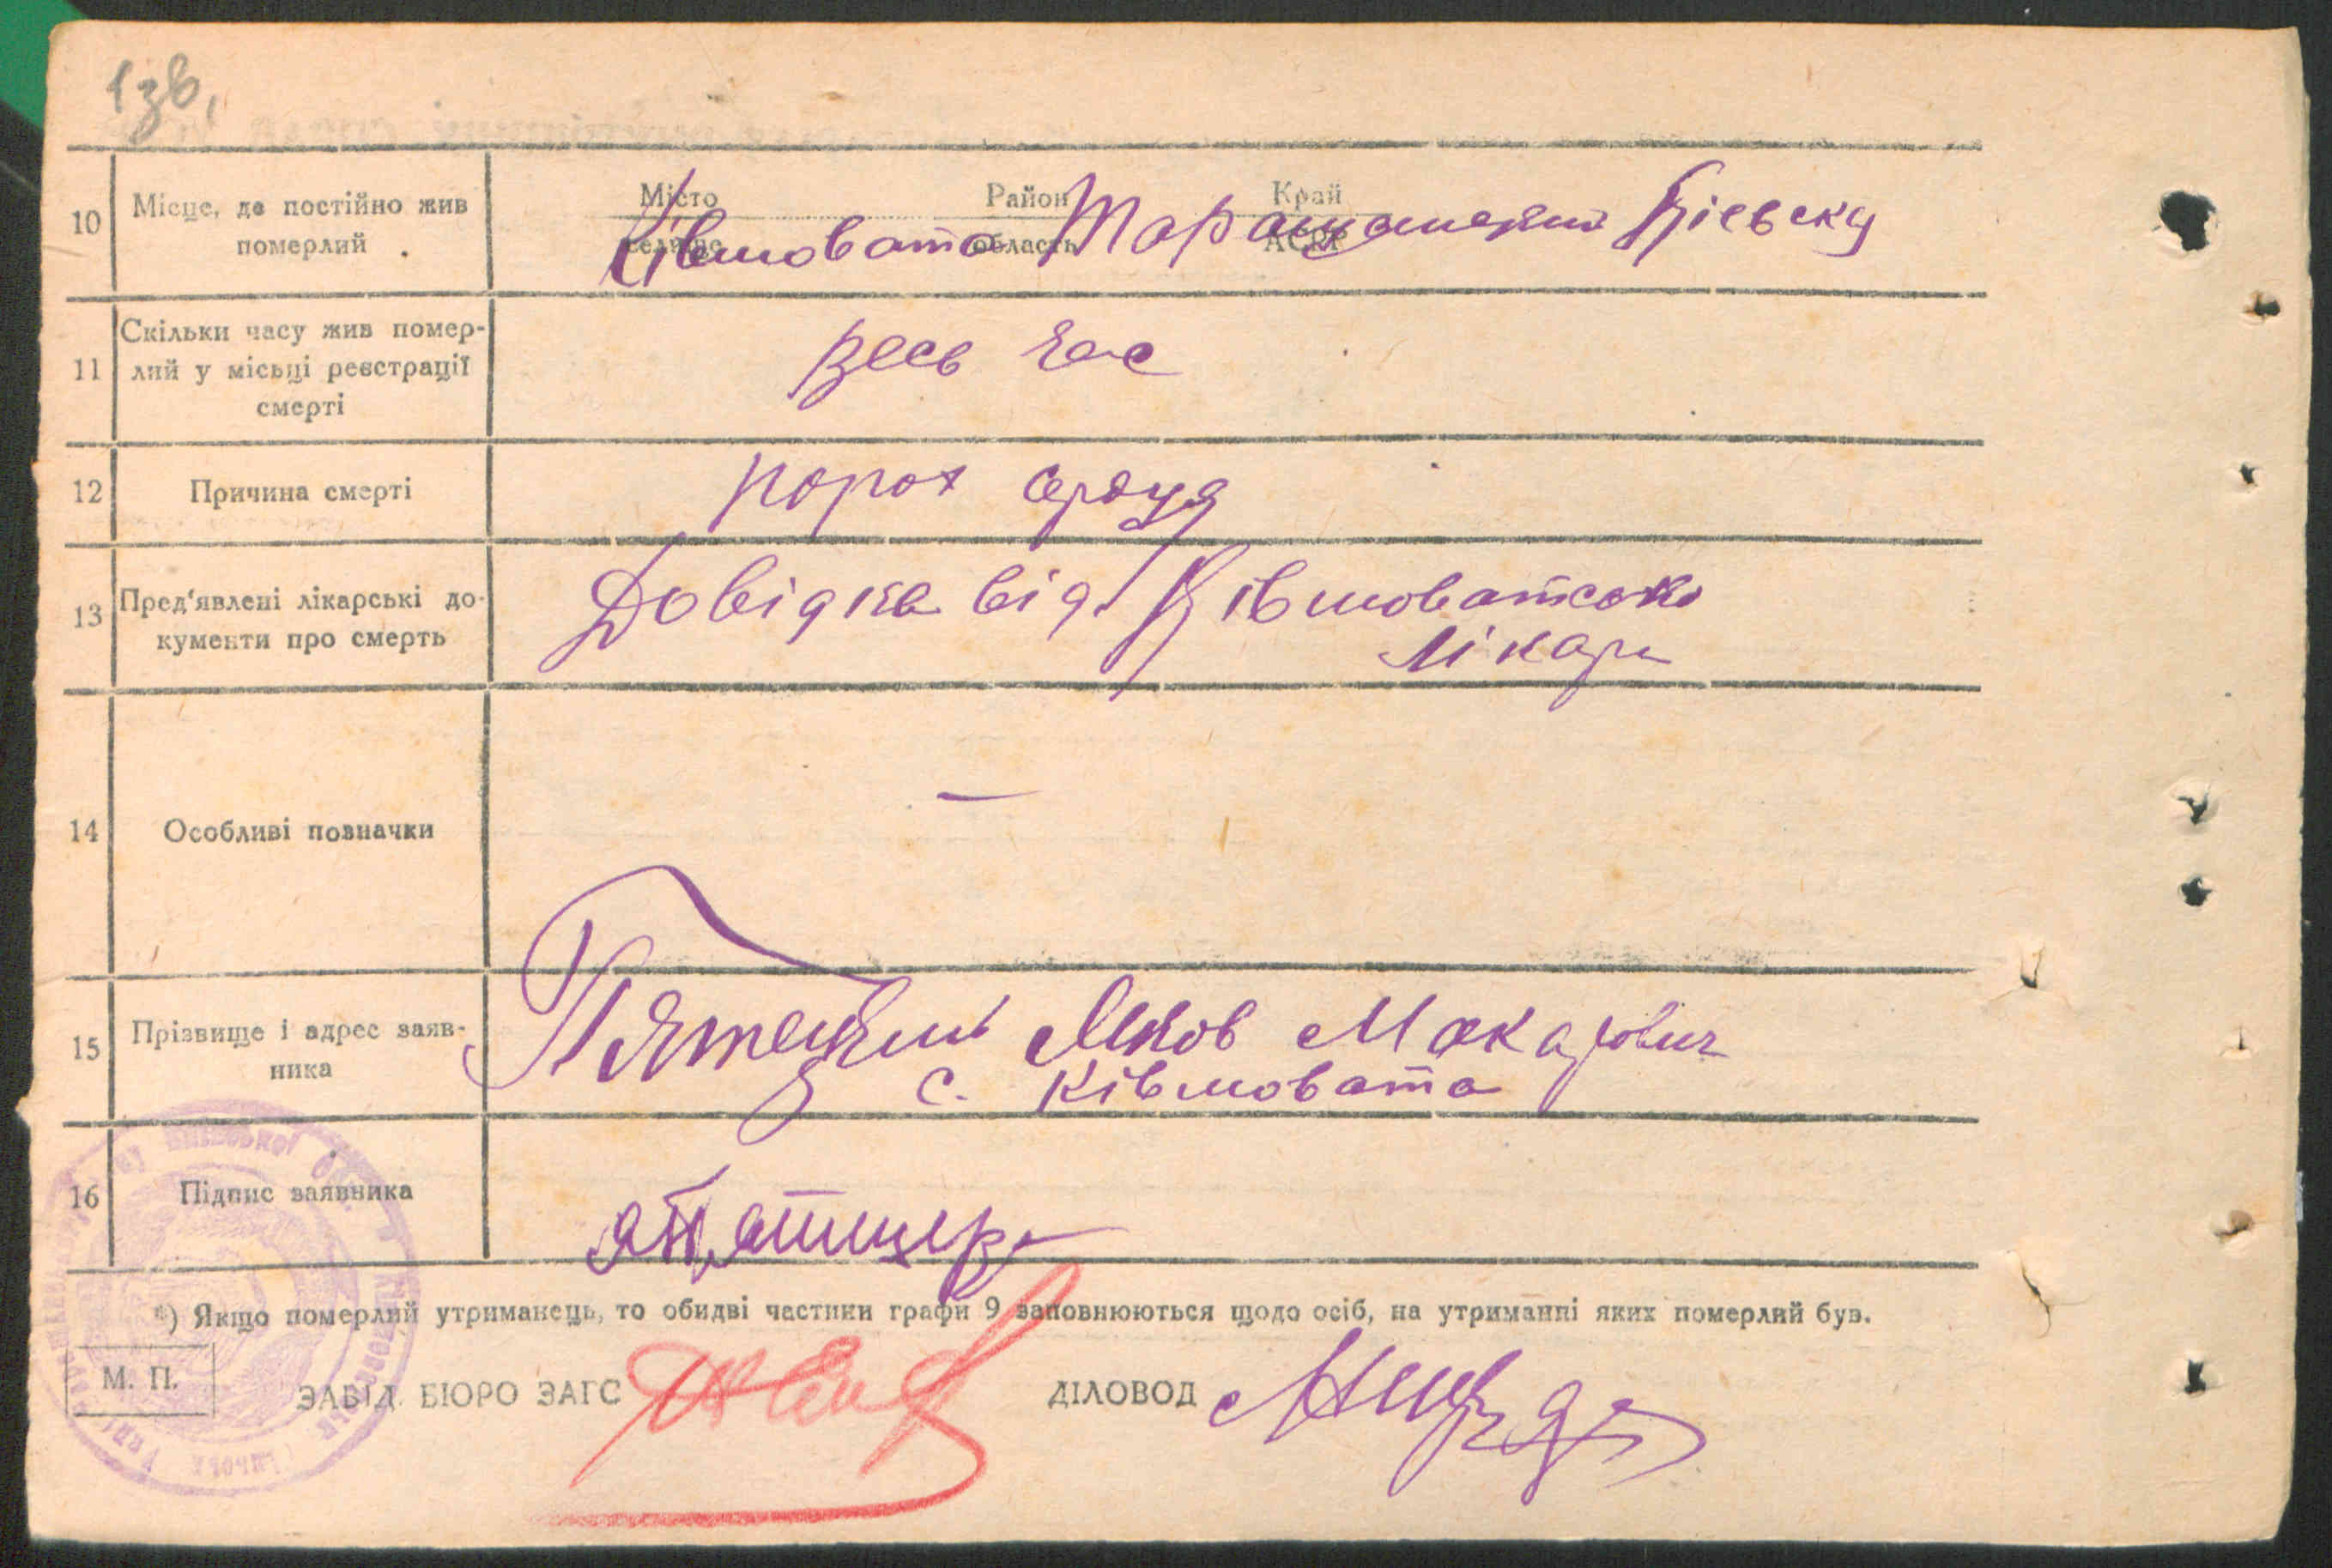 1зв,
10 Місце, де постійно жив померлий
Місто Район Край
селище область АСРР
Ківшовата Таращанский Кіевску
11 Скільки часу жив помер-
лий у місьці реєстрації
смерті
Весь час
12 Причина смерті
порок сердця
13 Пред'явлені лікарські до-
кументи про смерть
Довідка від Ківшоватсько
Лікаря
14 Особливі позначки
—
15 Прізвище і адрес заяв-
ника
Пятецкий Яков Макарович
с. Ківшовата
16 Підпис заявника
*) Якщо померлий утриманець, то обидві частини графи 9 заповнюються щодо осіб, на утриманні яких померлий був.
М. П.
ЗАВІД. БЮРО ЗАГС
ДІЛОВОД